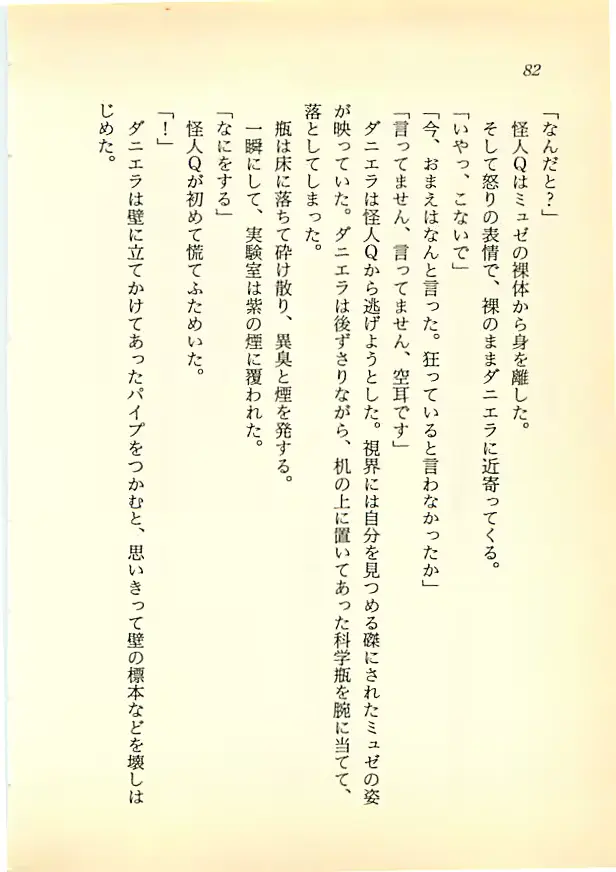 82
「なんだと?」
怪人Qはミュゼの裸体から身を離した。
そして怒りの表情で、裸のままダニエラに近寄ってくる。
「いやっ、こないで」
「今、おまえはなんと言った。狂っていると言わなかったか」
「言ってません、言ってません、空耳です」
ダニエラは怪人Qから逃げようとした。視界には自分を見つめる磔にされたミュゼの姿
が映っていた。ダニエラは後ずさりながら、机の上に置いてあった科学瓶を腕に当てて、
落としてしまった。
瓶は床に落ちて砕け散り、異臭と煙を発する。
一瞬にして、実験室は紫の煙に覆われた。
「なにをする」
怪人Qが初めて慌てふためいた。
「!」
ダニエラは壁に立てかけてあったパイプをつかむと、思いきって壁の標本などを壊しは
じめた。